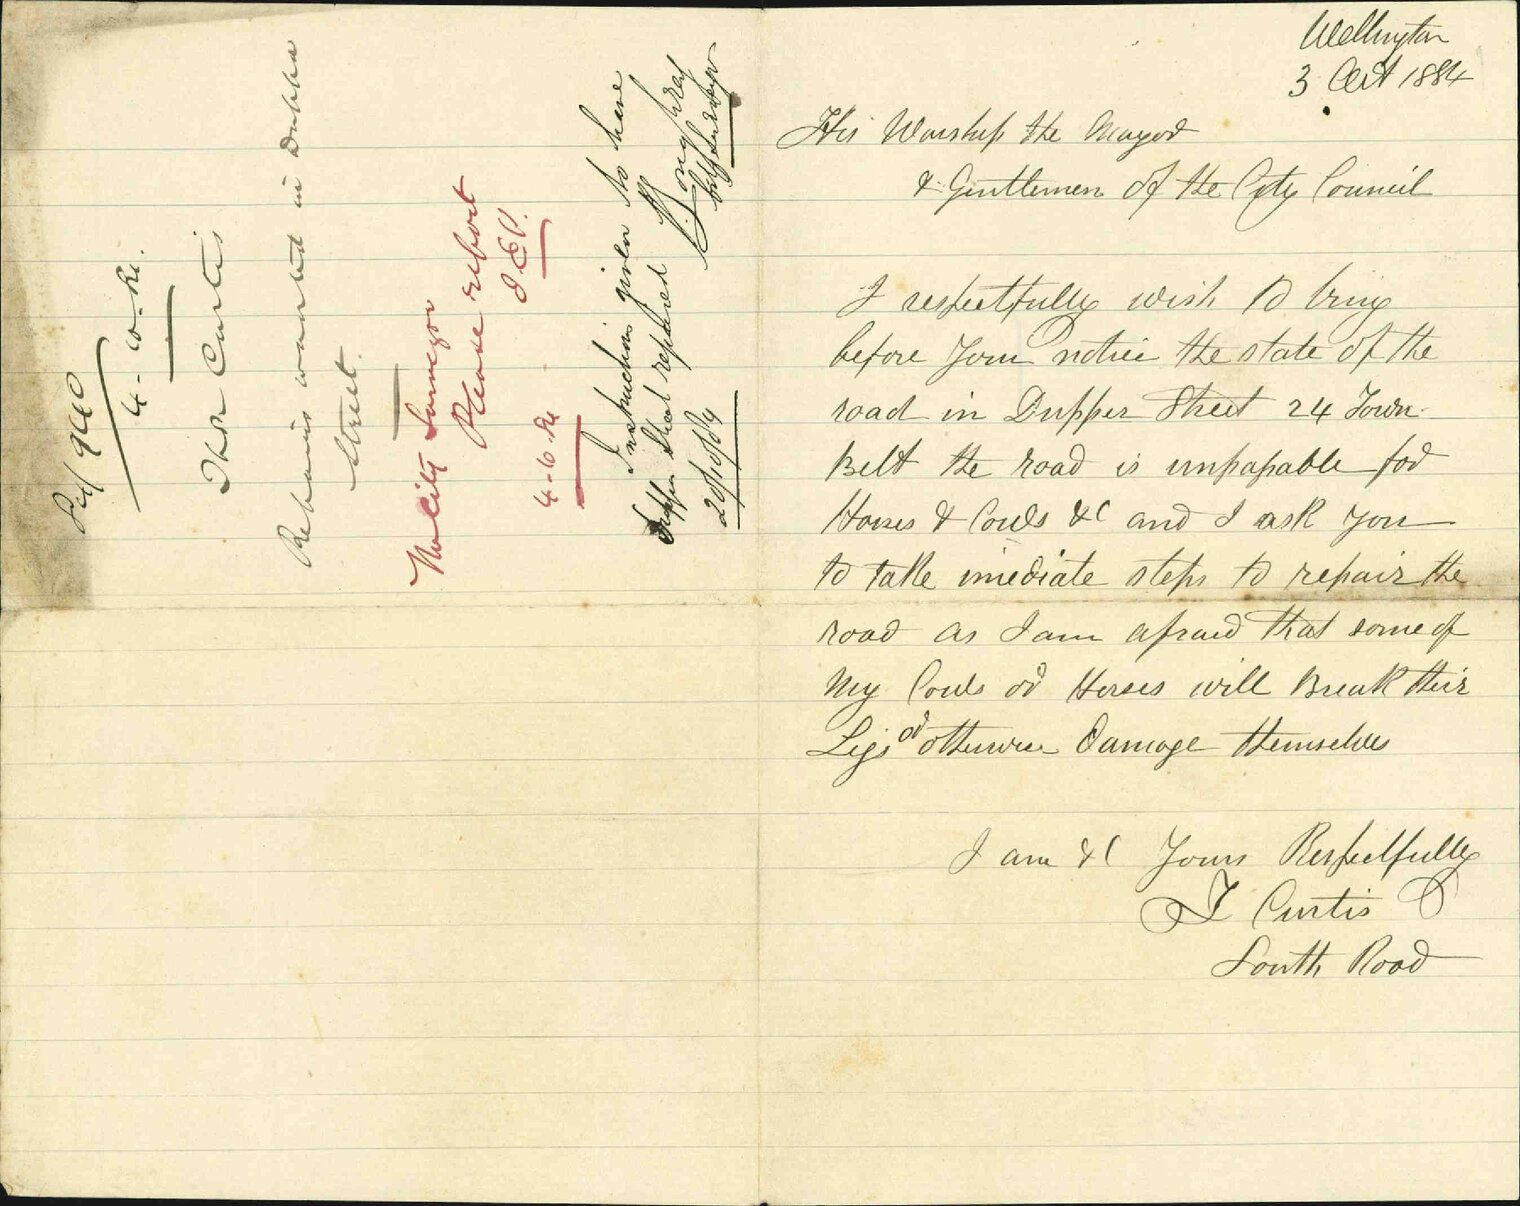 Wellington
3 Oct 1884
His Worship the Mayor
& Gentlemen of the City Council
I respectfully wish to bring
before your notice the state of the
road in Dupper Street 24 Town
Belt the road is unpassable for
Horses & Cows &c and I ask you
to take imediate steps to repair the
road as I am afraid that some of
my Cows or Horses will Break their
Legs or otherwise Damage themselves
I am &c Yours Respectfully
T Curtis
South Road
4-10-84
Thos Curtis
Repairs wanted in Duppa
Street.
City Surveyor
Please report
4-10-84
Instructions given to have
Duppa Street repaired
20/10/84